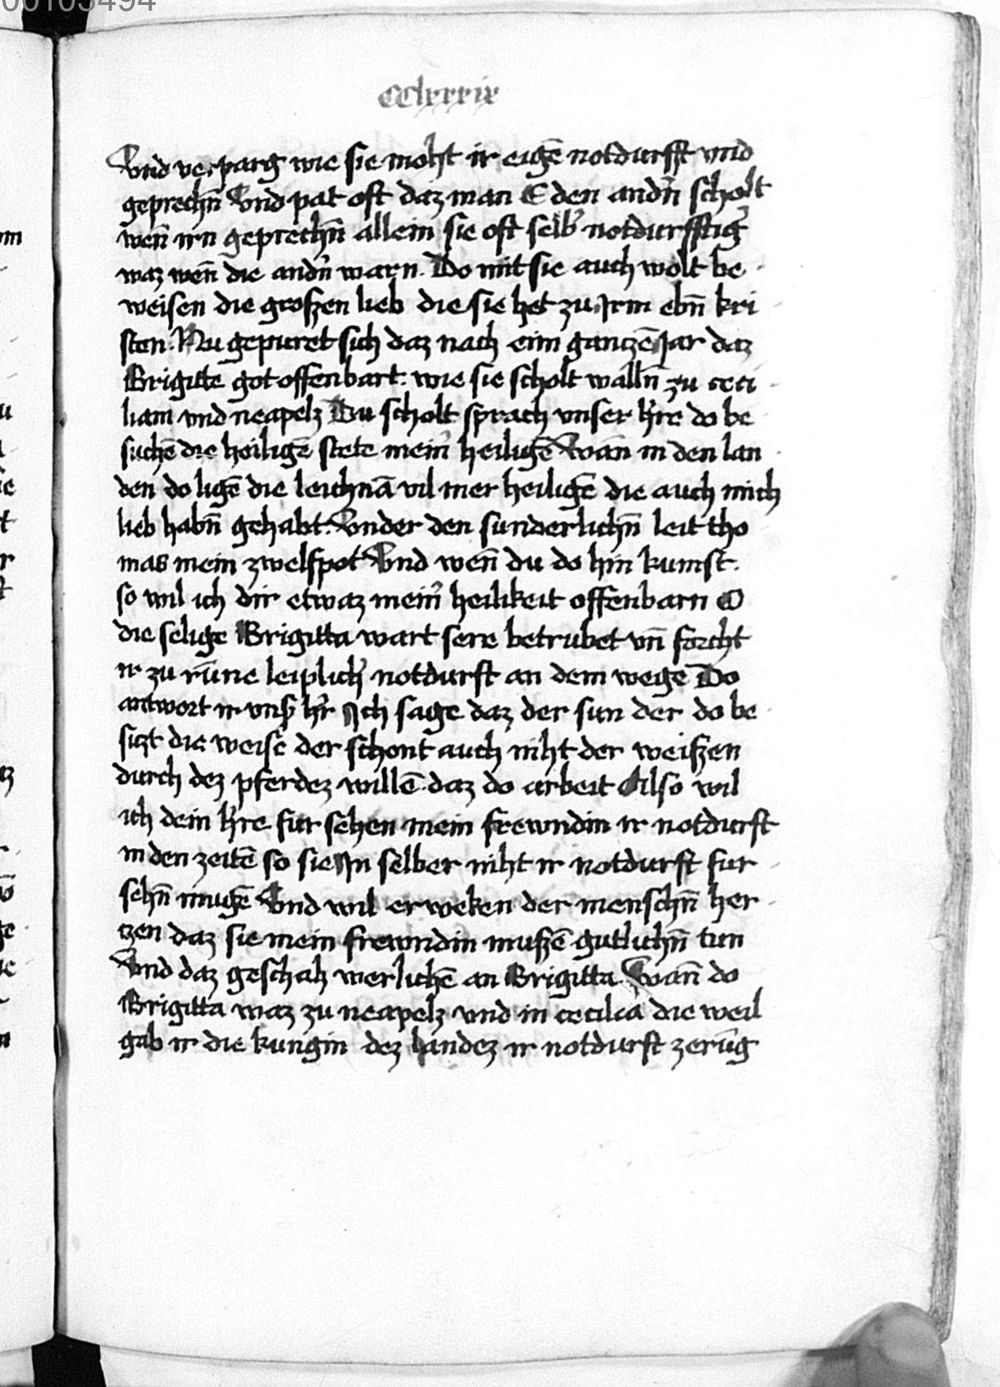 00105494
CClxxxix
Vnd verparg wie sie moht ir eigē notdurfft vnd
geprechn̄ Vnd pat oft daz man E den andn̄ scholt
wen̄ irn geprechn̄ allein sie oft selb' notdurfftig'
waz wen̄ die andn̄ warn. Do mit sie auch wolt be
weisen die großen lieb die sie het zu Irm ebn̄ kri
sten. Nu gepuret sich daz nach eim gantzē Jar daz
Brigitte got offenbart: wie sie scholt walln̄ zu ceci
liam vnd neapelz Du scholt sprach vnser h're do be
suchē die heiligē stete mein' heiligē Wan̄ in den lan
den do ligē die leichnā vil mer heiligē die auch mich
lieb habn̄ gehabt. Vnder den sunderlichn̄ leit tho
mas mein zwelfpot Vnd wen̄ du do hin kumst.
so wil ich dir etwaz mein' heilikeit offenbarn O
die selige Brigitta wart sere betrubet vn̄ forcht
ir zu rūne leiplich' notdurft an dem wege Do
antwort ir vns' h'r Ich sage daz der sun der do be
sitzt die weise der schont auch niht der weißen
durch dez pferdez willē. daz do arbeit Also wil
ich dein h're fur sehen mein frewndin ir notdurft
in den zeitē so sie In selber niht ir notdurft fur
sehn̄ mugē Vnd wil erweken der menschn̄ her
tzen daz sie mein frewndin mußē gutlichn̄ tun
Vnd daz geschah werlichē an Brigitta Wan̄ do
Brigitta waz zu neapelz vnd in cecilia die weil
gab ir die kungin dez landez ir notdurft zerūg